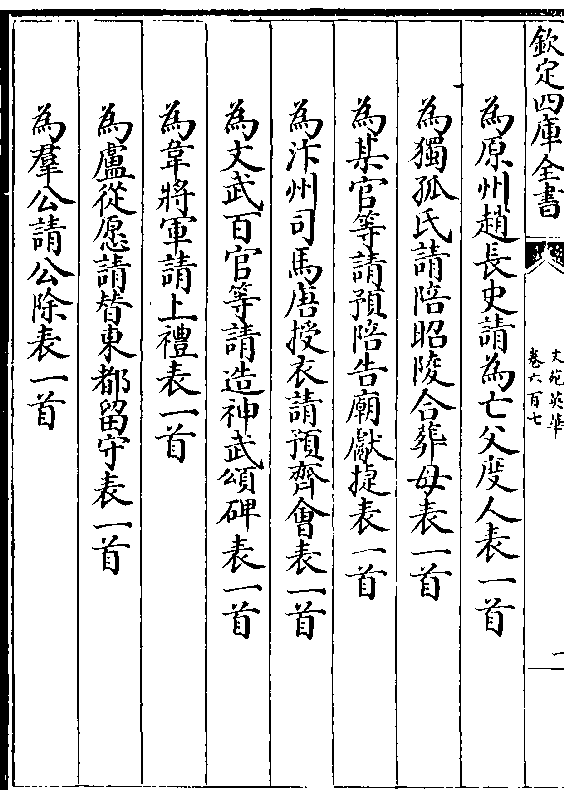 欽定四庫全書
文苑英華
卷六百七
一
為原州趙長史請為亡父度人表一首
為獨孤氏請陪昭陵合葬母表一首
為某官等請預陪告廟獻捷表一首
為汴州司馬唐授衣請預齊會表一首
為文武百官等請造神武頌碑表一首
為韋將軍請上禮表一首
為盧從愿請替東都留守表一首
為羣公請公除表一首